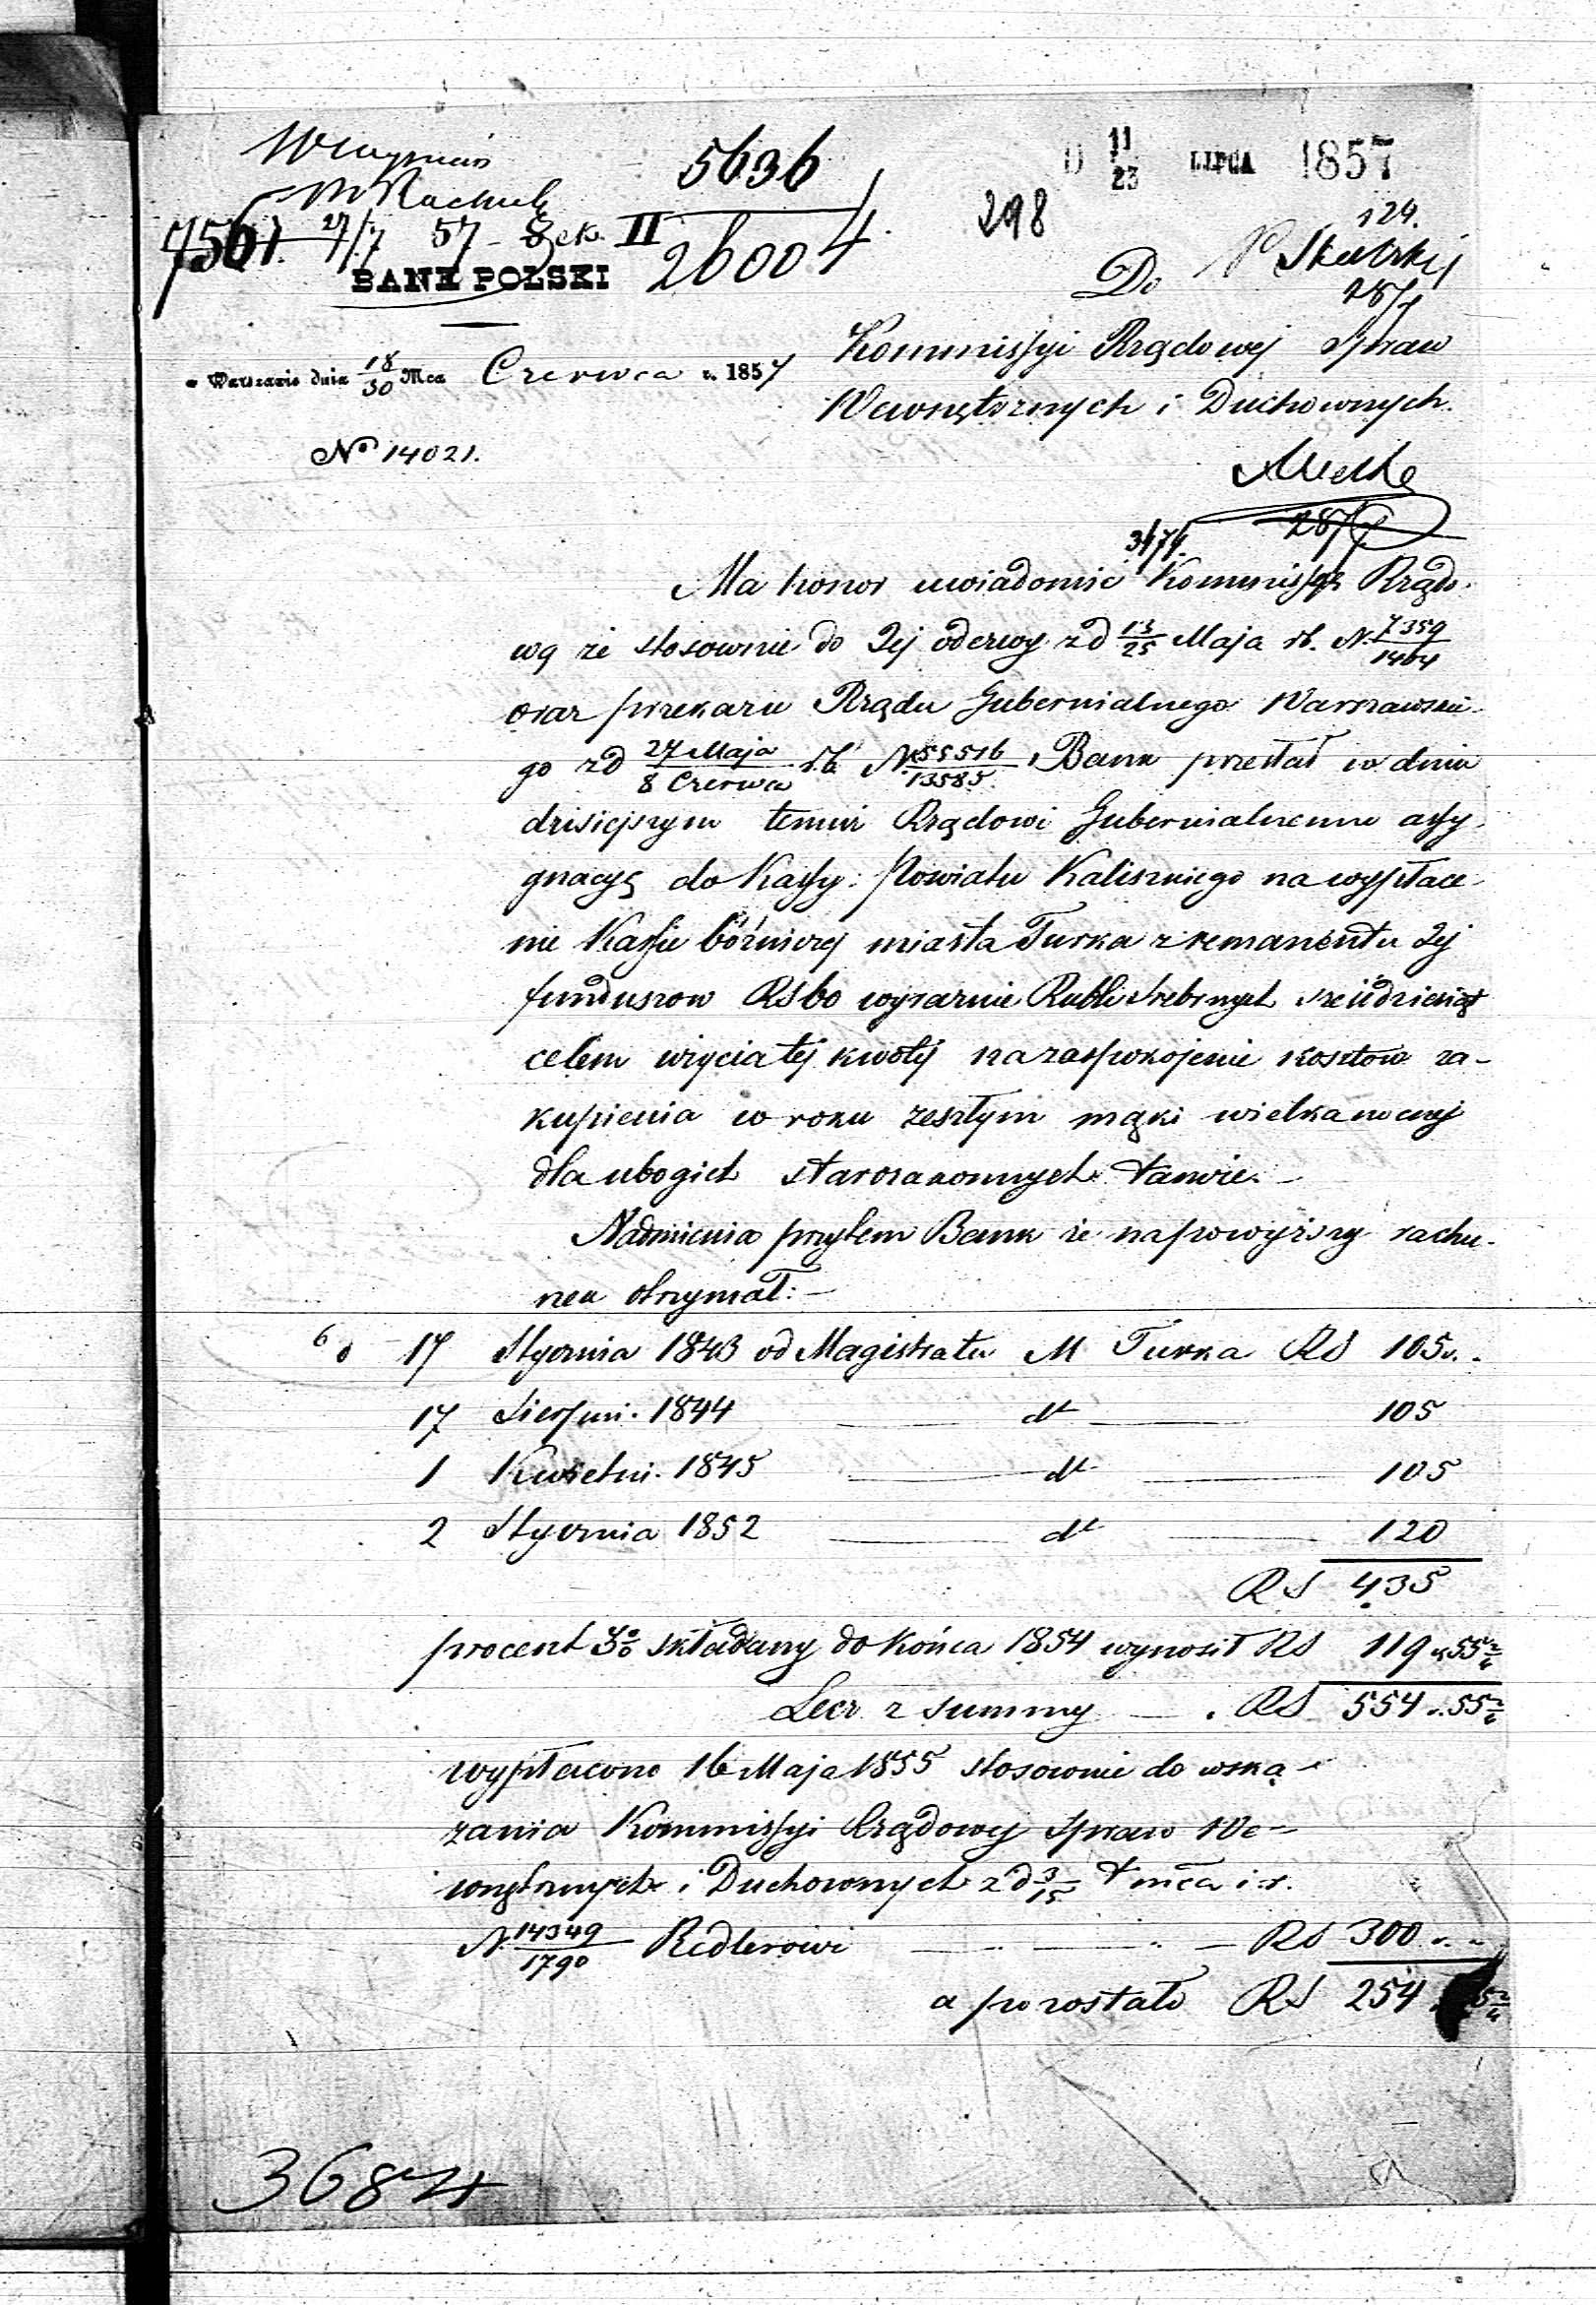 5636
D 11/23 LIPCA 1857
298
124.
7561. 27/7 57 – Sek. II
26004.
BANK POLSKI
Do
w Warszawie dnia 18/30 Mca Czerwca r. 1857
Kommissyi Rządowej Spraw
Wewnętrznych i Duchownych.
No 14021.
28/7
Ma honor uwiadomić Kommissyę Rządo-
wą że stosownie do Jej odezwy z d 13/25 Maja rb. N. 7359/1464
oraz przekazu Rządu Gubernialnego Warszawskie-
go z d 27 Maja/8 Czerwca r.b. N. 55516/13585. Bank przesłał w dniu
dzisiejszym temuż Rządowi Gubernialnemu assy-
gnacyę do Kassy Powiatu Kaliskiego na wypłace-
nie Kassie bóżniczej miasta Turka z remanentu Jej
funduszow RS 60 wyraznie Rubli Srebrnych sześćdziesiąt
celem użycia tej kwoty na zaspokojenie kosztow za-
kupienia w roku zeszłym mąki wielkanocnej
dla ubogich starozakonnych tamże. –
Nadmienia przytem Bank że na powyższy rachu-
nek otrzymał: –
d 17 Stycznia 1843 od Magistratu M Turka RS 105 „ -
17 Sierpni. 1844 — dt — 105
1 Kwietni. 1845 — dt — 105
2 Stycznia 1852 — dt — 120
RS 435
procent 3% składany do końca 1854 wynosił RS 119 „ 55 2/4
Lecz z summy — . RS 554 „ 55 2/4
wypłacono 16 Maja 1855 stosownie do wska-
zania Kommissyi Rządowej Spraw We-
wnętrznych i Duchownych z d 3/15 t mca i r.
N. 14349/1790 Redlerowi — RS 300 „ „
a pozostało RS 254
3684